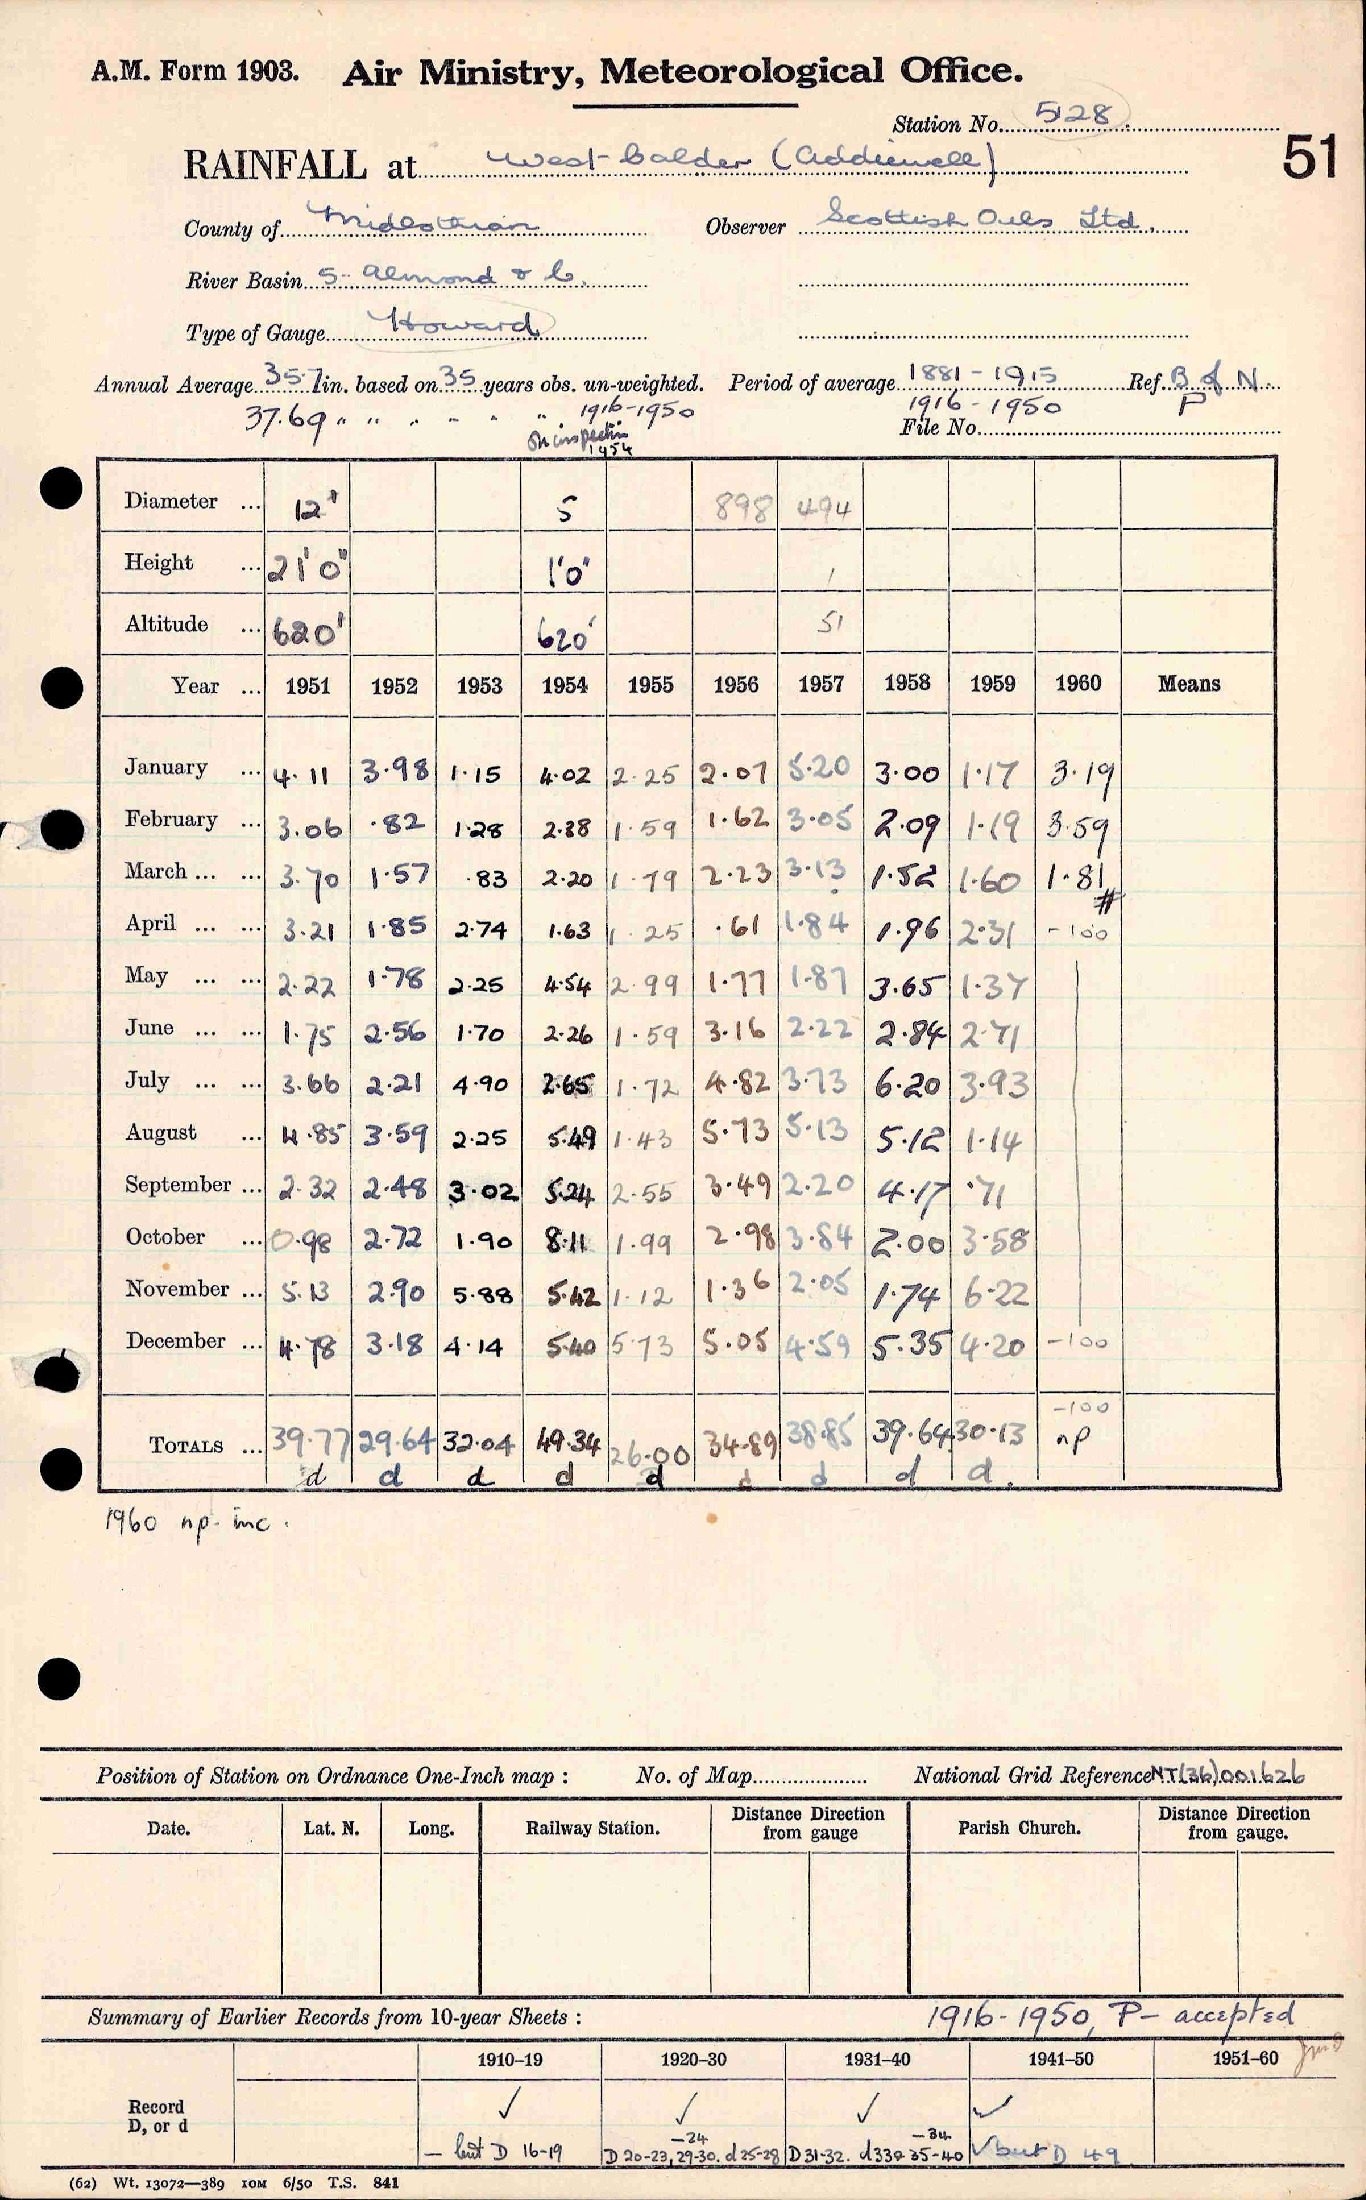 A.M. Form 1903. Air Ministry, Meteorological Office.
Station No. 528
51
RAINFALL at West Calder (Addiewell)
County of Midlothian Observer Scottish Oils Ltd.
River Basin 5- Almond & C.
Type of Gauge Howard
Annual Average 35.7 in. based on 35 years obs. un-weighted. Period of average 1881-1915 Ref. B of N.
37.69 " " . - - " 1916-1950 1916-1950 P
File No.
On inspection
1954
Diameter ... 12" 5 898 494
Height ... 21'0" 1'0" 1
Altitude ... 620' 620' 51
Year ... 1951 1952 1953 1954 1955 1956 1957 1958 1959 1960 Means
January ... 4.11 3.98 1.15 4.02 2.25 2.07 5.20 3.00 1.17 3.19
February ... 3.06 .82 1.28 2.38 1.59 1.62 3.05 2.09 1.19 3.59
March ... ... 3.70 1.57 .83 2.20 1.79 2.23 3.13 1.52 1.60 1.81 #
April ... ... 3.21 1.85 2.74 1.63 1.25 .61 1.84 1.96 2.31 -100
May ... ... 2.22 1.78 2.25 4.54 2.99 1.77 1.87 3.65 1.37
June ... ... 1.75 2.56 1.70 2.26 1.59 3.16 2.22 2.84 2.71
July ... ... 3.66 2.21 4.90 2.65 1.72 4.82 3.73 6.20 3.93
August ... 4.85 3.59 2.25 5.49 1.43 5.73 5.13 5.12 1.14
September ... 2.32 2.48 3.02 5.24 2.55 3.49 2.20 4.17 .71
October ... 0.98 2.72 1.90 8.11 1.99 2.98 3.84 2.00 3.58
November ... 5.13 2.90 5.88 5.42 1.12 1.36 2.05 1.74 6.22
December ... 4.78 3.18 4.14 5.40 5.73 5.05 4.59 5.35 4.20 -100
-100
TOTALS ... 39.77 29.64 32.04 49.34 26.00 34.89 38.85 39.64 30.13 np
d d d d d d d d d.
1960 np. inc.
Position of Station on Ordnance One-Inch map : No. of Map National Grid Reference NT(36)001626
Date. Lat. N. Long. Railway Station. Distance Direction from gauge Parish Church. Distance Direction from gauge.
Summary of Earlier Records from 10-year Sheets : 1916-1950, P- accepted
1910-19 1920-30 1931-40 1941-50 1951-60
Record
D, or d
✓ ✓ ✓ ✓
-24 -34
- but D 16-19 D 20-23, 29-30. d 25-28 D 31-32. d 33 35-40 ✓ but D 49
(62) Wt. 13072—389 IOM 6/50 T.S. 841